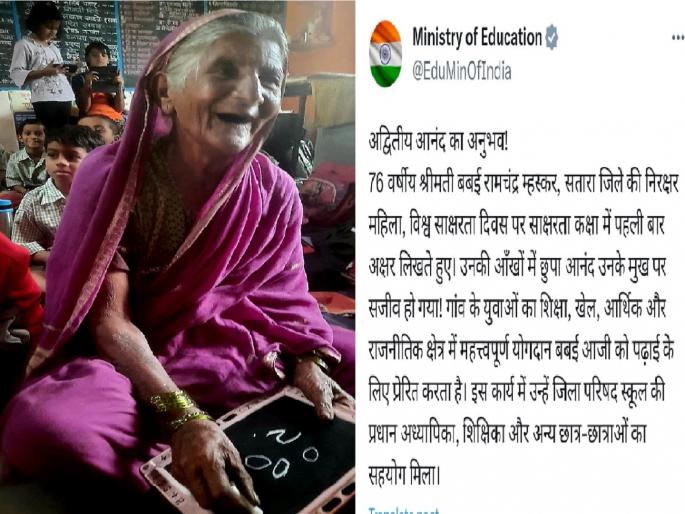 Ministry of Education
@EduMinOfIndia
अद्वितीय आनंद का अनुभव!
76 वर्षीय श्रीमती बबई रामचंद्र म्हस्कर, सतारा जिले की निरक्षर
महिला, विश्व साक्षरता दिवस पर साक्षरता कक्षा में पहली बार
अक्षर लिखते हुए। उनकी आँखों में छुपा आनंद उनके मुख पर
सजीव हो गया! गांव के युवाओं का शिक्षा, खेल, आर्थिक और
राजनीतिक क्षेत्र में महत्त्वपूर्ण योगदान बबई आजी को पढ़ाई के
लिए प्रेरित करता है। इस कार्य में उन्हें जिला परिषद स्कूल की
प्रधान अध्यापिका, शिक्षिका और अन्य छात्र-छात्राओं का
सहयोग मिला।
Translate post